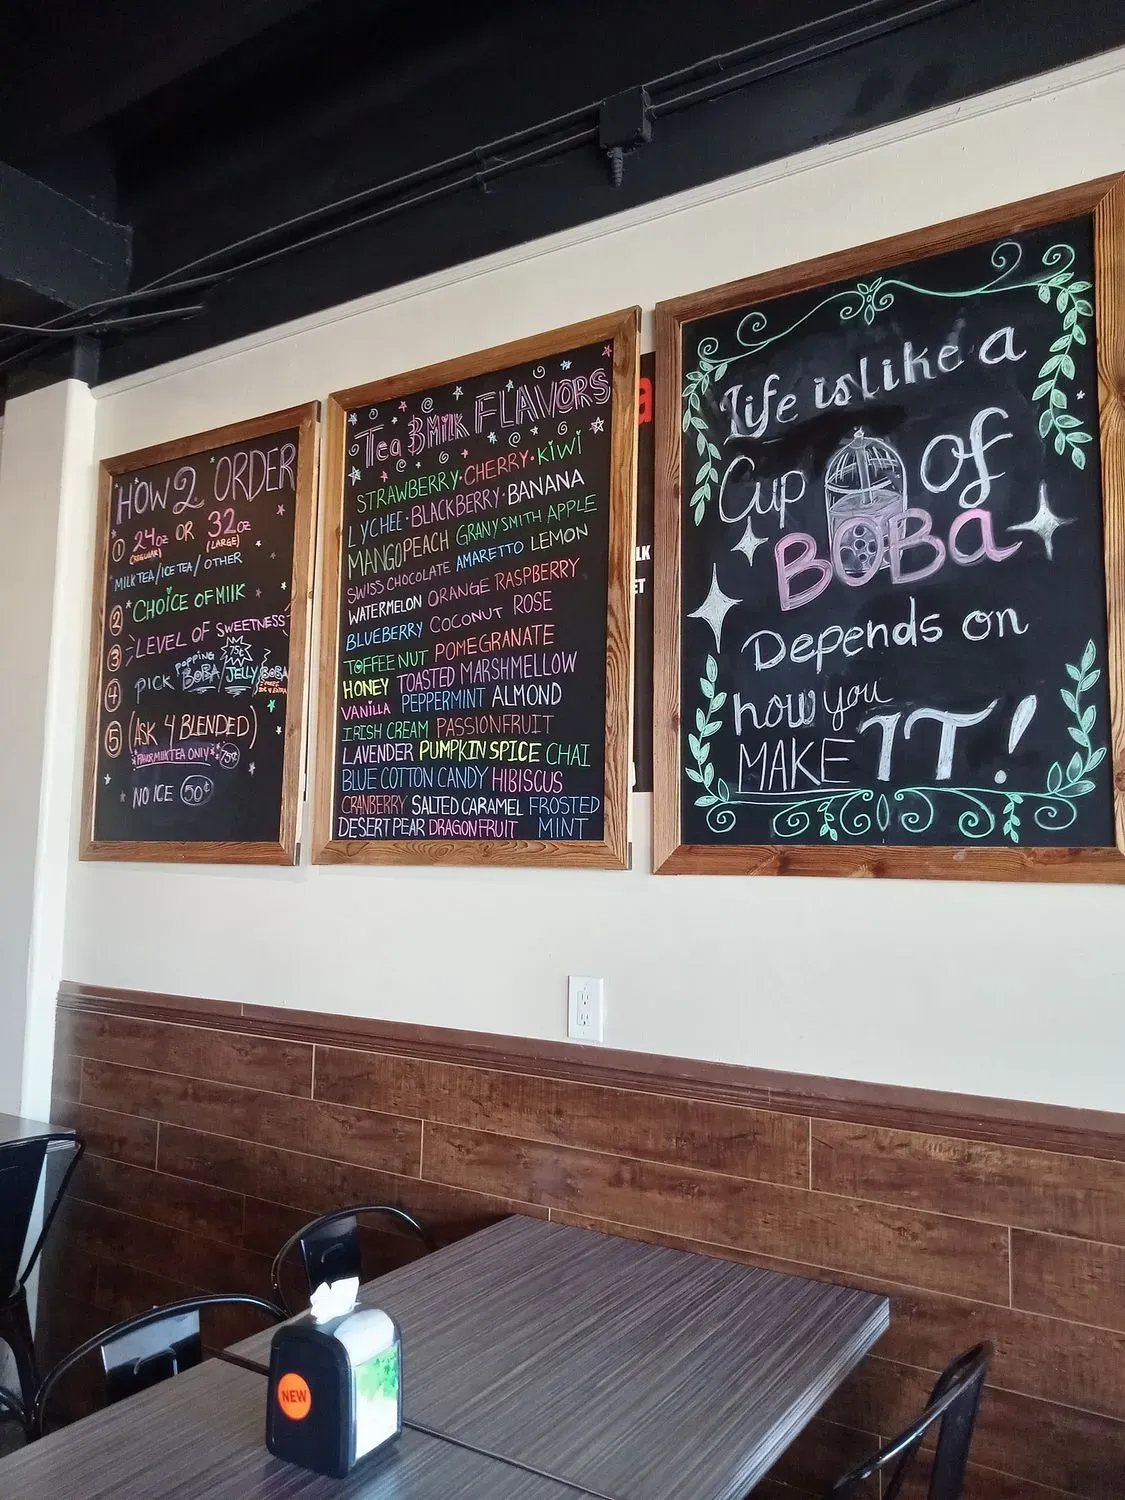 HOW 2 ORDER
① 24oz OR 32oz
(REGULAR) (LARGE)
MILK TEA/ICE TEA/OTHER
② CHOICE OF MILK
③ LEVEL OF SWEETNESS
75¢
④ PICK popping BOBA/JELLY/BOBA
⑤ (ASK 4 BLENDED)
75¢
NO ICE 50¢
Tea & MILK FLAVORS
STRAWBERRY·CHERRY·KIWI
LYCHEE·BLACKBERRY·BANANA
MANGO PEACH GRANY SMITH APPLE
SWISS CHOCOLATE AMARETTO LEMON
WATERMELON ORANGE RASPBERRY
BLUEBERRY COCONUT ROSE
TOFFEE NUT POMEGRANATE
HONEY TOASTED MARSHMELLOW
VANILLA PEPPERMINT ALMOND
IRISH CREAM PASSIONFRUIT
LAVENDER PUMPKIN SPICE CHAI
BLUE COTTON CANDY HIBISCUS
CRANBERRY SALTED CARAMEL FROSTED
DESERT PEAR DRAGONFRUIT MINT
Life is like a
Cup of
BOBa
Depends on
how you
MAKE IT!
NEW